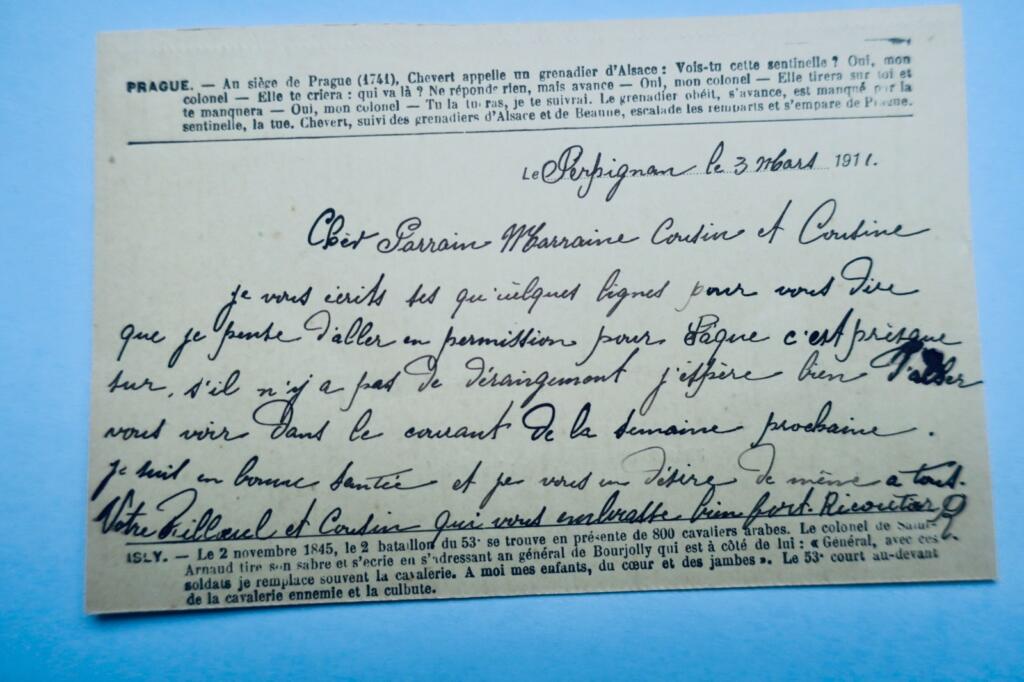 PRAGUE. — An siège de Prague (1741), Chevert appelle un grenadier d'Alsace : Vois-tu cette sentinelle ? Oui, mon
colonel — Elle te criera : qui va là ? Ne réponds rien, mais avance — Oui, mon colonel — Elle tirera sur toi et
te manquera — Oui, mon colonel — Tu la tueras, je te suivrai. Le grenadier obéit, s'avance, est manqué par la
sentinelle, la tue. Chevert, suivi des grenadiers d'Alsace et de Beaune, escalade les remparts et s'empare de Prague.
Le Perpignan le 3 Mars 1911.
Cher Parrain Marraine Cousin et Cousine
je vous écrits ses qu'uelques lignes pour vous dire
que je pense d'aller en permission pour Pâque c'est présque
sur, s'il n'y a pas de dérangement j'espère bien d'aller
vous voir dans le courant de la semaine prochaine.
je suis en bonne santée et je vous en désire de même a tous.
Votre Filleul et Cousin qui vous embrasse bien fort. Ricoutar
ISLY. — Le 2 novembre 1845, le 2 bataillon du 53e se trouve en présente de 800 cavaliers arabes. Le colonel de Saint-
Arnaud tire son sabre et s'ecrie en s'adressant an général de Bourjolly qui est à côté de lui : « Général, avec ces
soldats je remplace souvent la cavalerie. A moi mes enfants, du cœur et des jambes ». Le 53e court au-devant
de la cavalerie ennemie et la culbute.